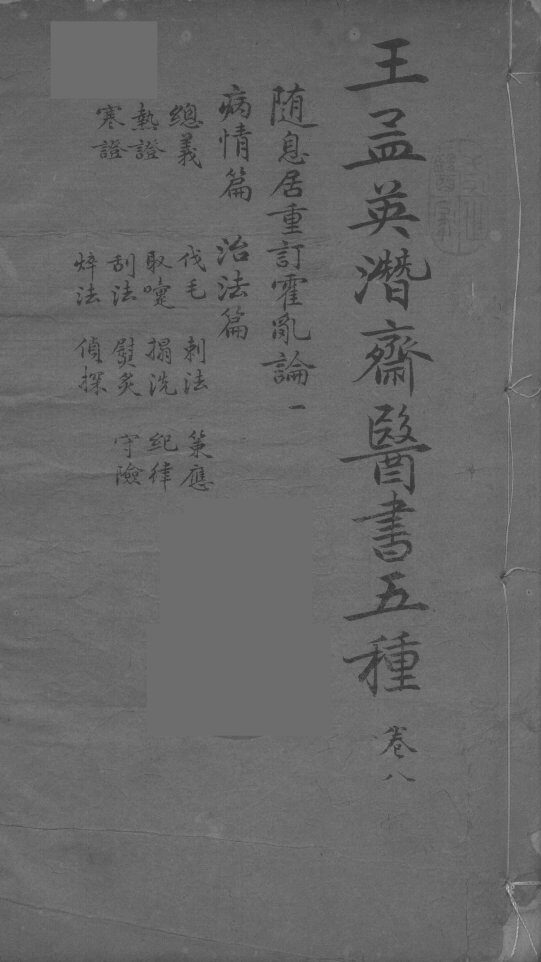 王孟英潛齋醫書五種 卷八
随息居重訂霍亂論 一
病情篇 治法篇
總義 伐毛 刺法 策應
熱證 取嚏 搨洗 紀律
寒證 刮法 熨灸 守險
焠法 偵探